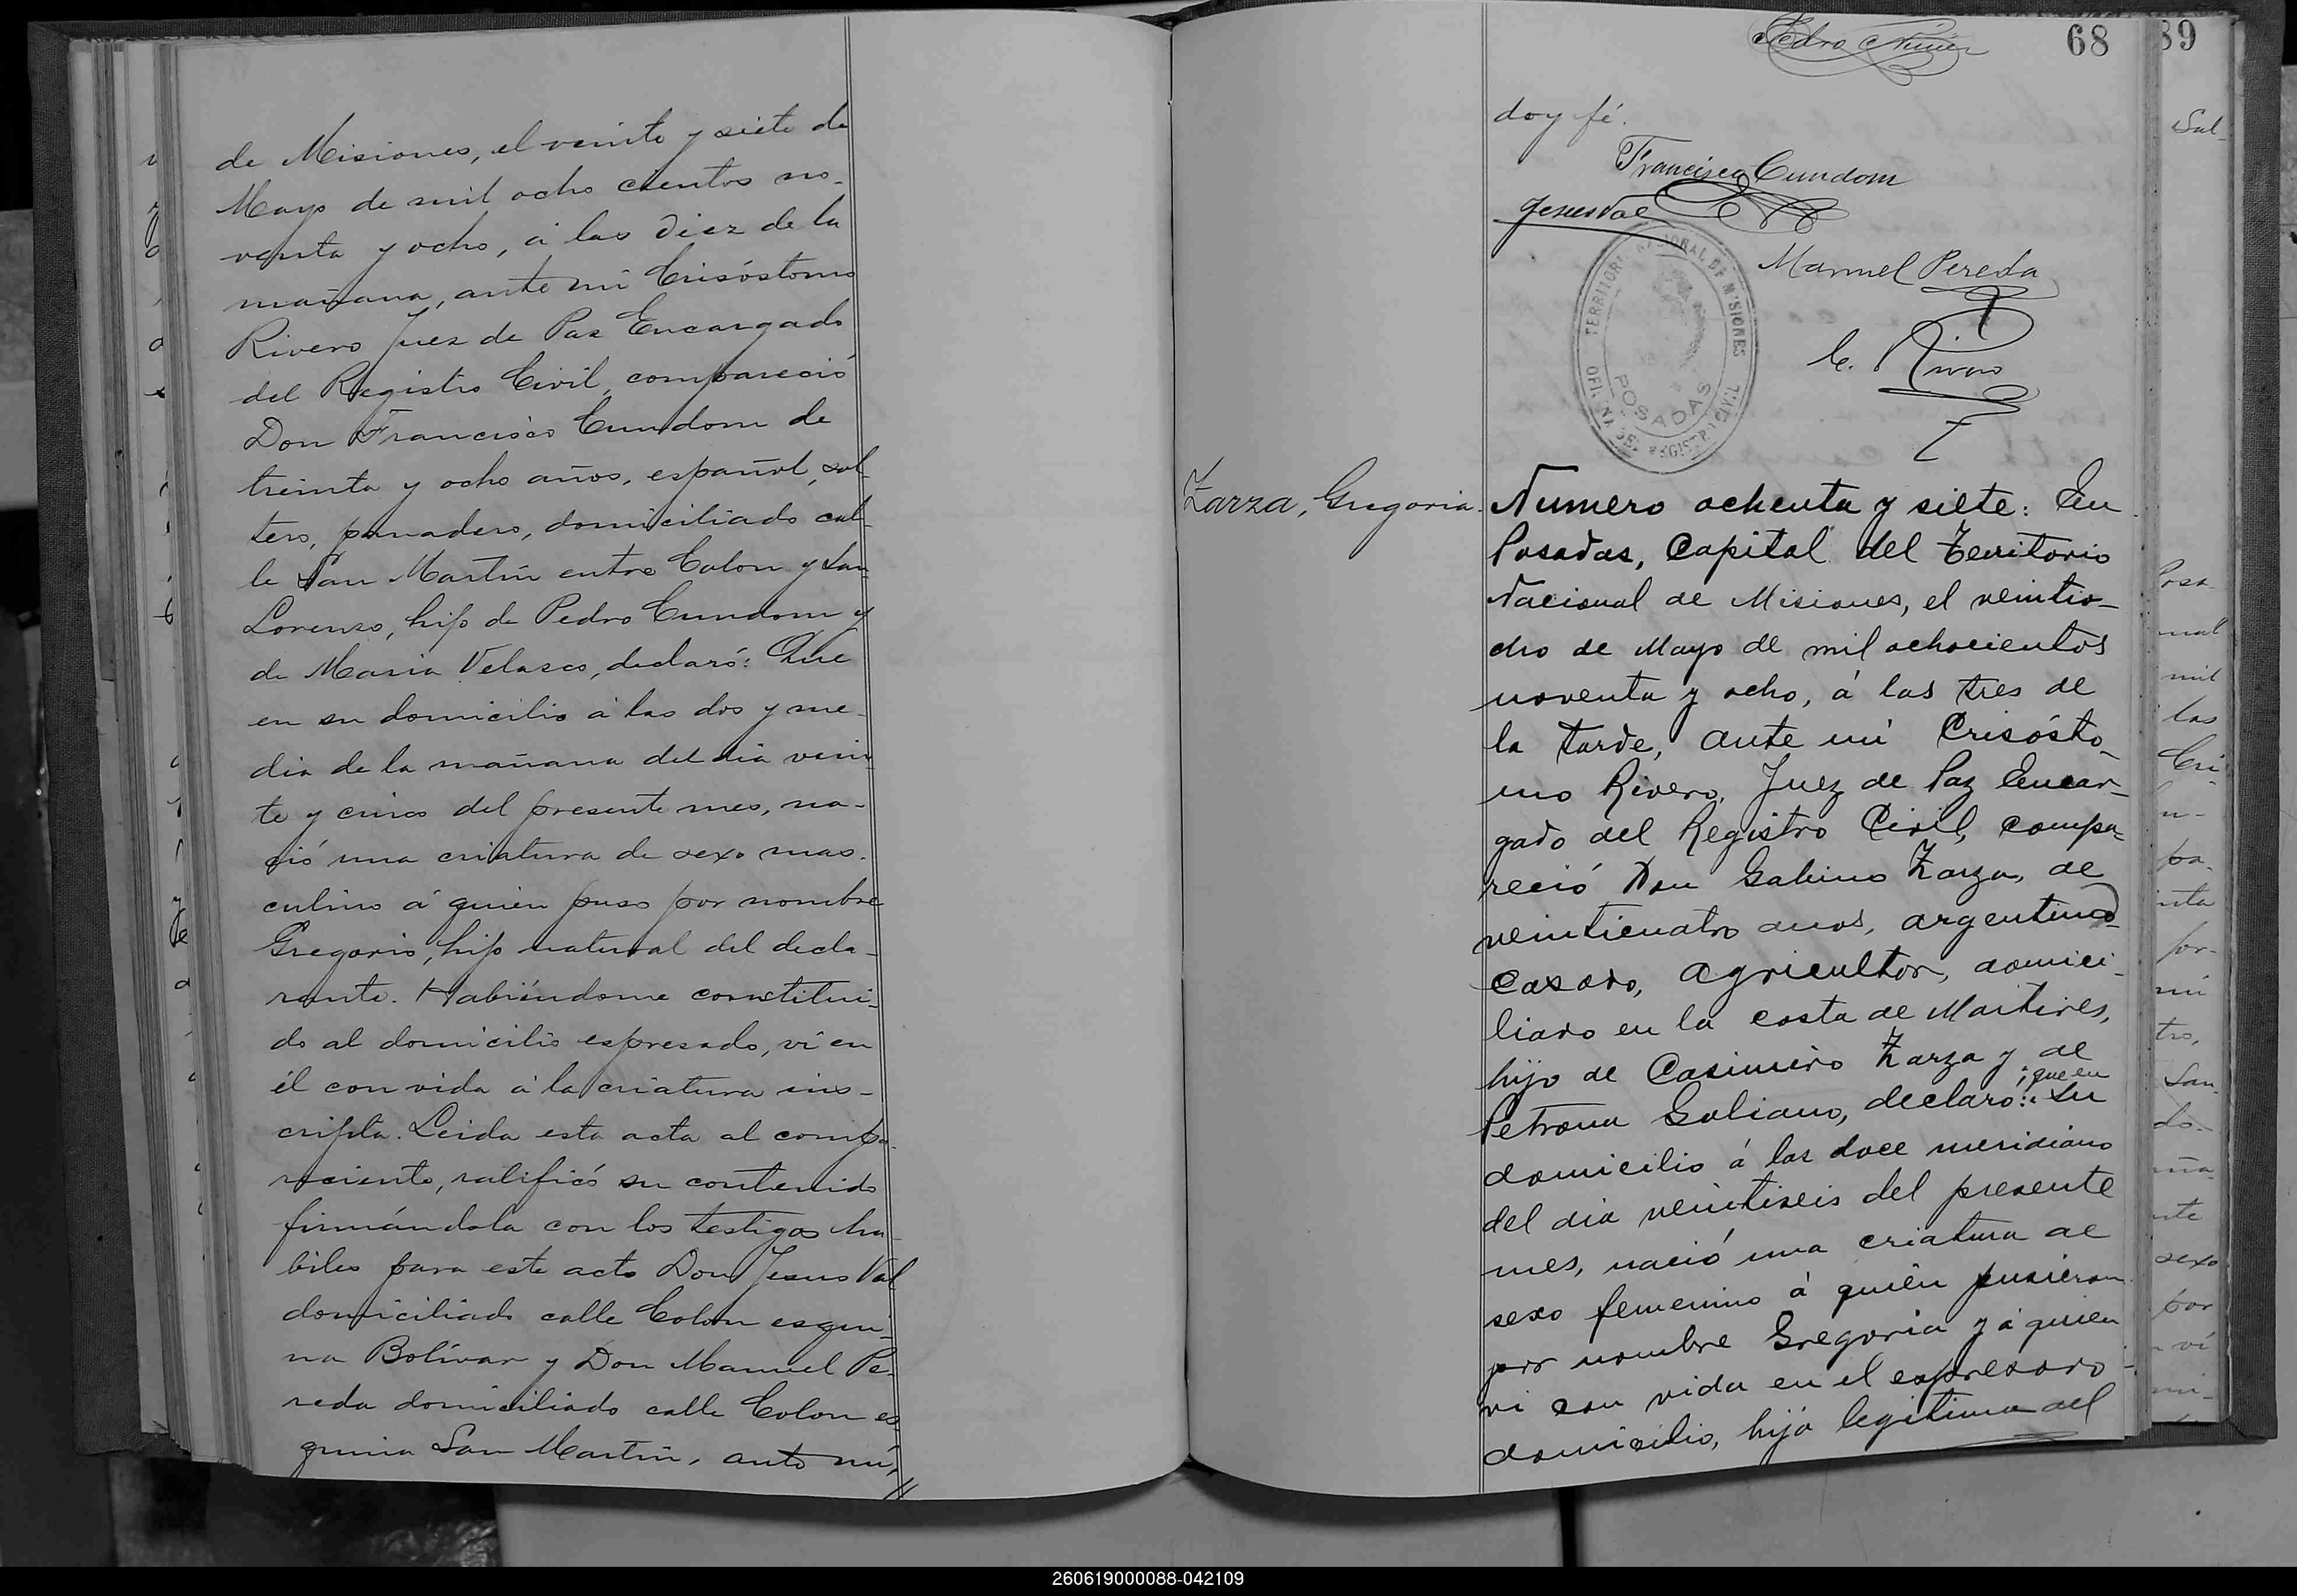 de Misiones, el veinte y siete de
Mayo de mil ocho cientos no-
venta y ocho, á las diez de la
mañana, ante mi Crisóstomo
Rivero Juez de Paz Encargado
del Registro Civil, compareció
Don Francisco Cundom de
treinta y ocho años, español, sol-
tero, panadero, domiciliado cal-
le San Martin entre Colon y San
Lorenzo, hijo de Pedro Cundom y
de Maria Velasco, declaró: Que
en su domicilio á las dos y me-
dia de la mañana del dia vein-
te y cinco del presente mes, na-
ció una criatura de sexo mas-
culino á quien puso por nombre
Gregorio, hijo natural del decla-
rante. Habiéndome constitui-
do al domicilio espresado, vi en
él con vida á la criatura ins-
cripta. Leida esta acta al compa-
reciente, ratificó su contenido
firmándola con los testigos há-
biles para este acto Don Jesus Val
domiciliado calle Colon esqui-
na Bolívar y Don Manuel Pe-
reda domiciliado calle Colon es
quina San Martin, ante mi,
Pedro Nuñez
68
89
doy fé.
Francisco Cundom
Jesus Val
Manuel Pereda
C. Rivero
TERRITORIO NACIONAL DE MISIONES
OFICINA DEL REGISTRO CIVIL
POSADAS
Zarza, Gregoria.
Numero ochenta y siete: En
Posadas, Capital del Territorio
Nacional de Misiones, el veintio-
cho de Mayo de mil ochocientos
noventa y ocho, á las tres de
la tarde, ante mi Crisósto-
mo Rivero, Juez de Paz Encar-
gado del Registro Civil, compa-
reció Don Gabino Zarza, de
veinticuatro anos, argentino
casado, agricultor, domici-
liado en la costa de Martires,
hijo de Casimiro Zarza y de
Petrona Galiano, declaró: que en su
domicilio á las doce meridiano
del dia veintiseis del presente
mes, nació una criatura de
sexo femenino á quien pusieron
por nombre Gregoria y á quien
vi con vida en el espresado
domicilio, hija legitima del
Sal-
Posa-
nal
mil
las
Cri
pa-
nta
for-
mi
tro,
San
do-
ña-
nte
sexo
por
vi
mi-
260619000088-042109